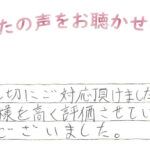 たの声をお聴かせ
切にご対応頂けました
様を高く評価させてい
ございました。